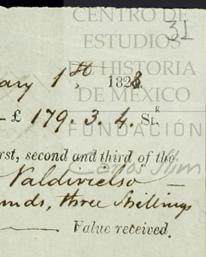 CENTRO DE
ESTUDIOS
DE HISTORIA
DE MÉXICO
FUNDACIÓN
Carlos Slim
31
ary 1st 1828
£ 179. 3. 4. St.g
rst, second and third of the
Valdivielso
unds, three Shillings
Value received.